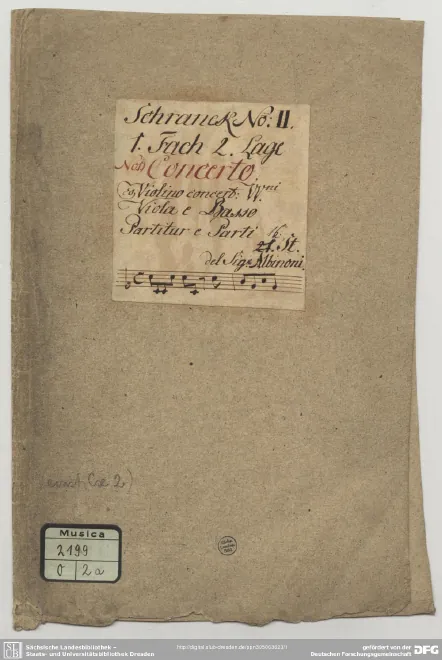 Schranck No: II.
1. Fach 2. Lage
Concerto.
Violino concert:
Viola e Basso
Partitur e Parti
St.
del Sigr. Albinoni.
Musica
2199
O 2a
Sächsische Landesbibliothek –
Staats- und Universitätsbibliothek Dresden
gefördert von der
Deutschen Forschungsgemeinschaft
DFG